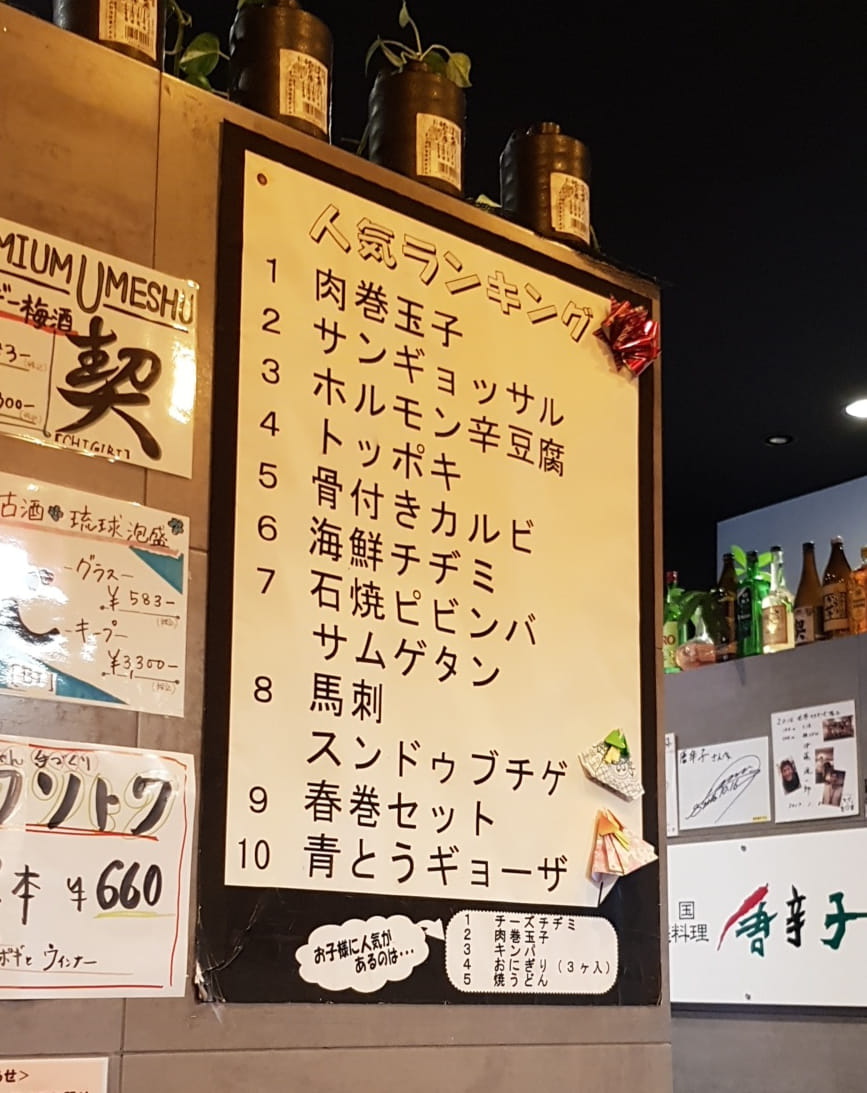 人気ランキング
1 肉巻玉子
2 サンギョッサル
3 ホルモン辛豆腐
4 トッポキ
5 骨付きカルビ
6 海鮮チヂミ
7 石焼ピビンバ
サムゲタン
8 馬刺
スンドゥブチゲ
9 春巻セット
10 青とうギョーザ
お子様に人気が
あるのは…
1 チーズチヂミ
2 肉巻玉子
3 キンパ
4 おにぎり(3ヶ入)
5 焼うどん
MIUM UMESHU
梅酒
契
[CHIGIRI]
古酒 琉球泡盛
グラス
¥583-
(税込)
キープ
¥3,300-
(税込)
ソトク
本 ¥660
ウインナー
唐辛子さん
国
料理
唐辛子